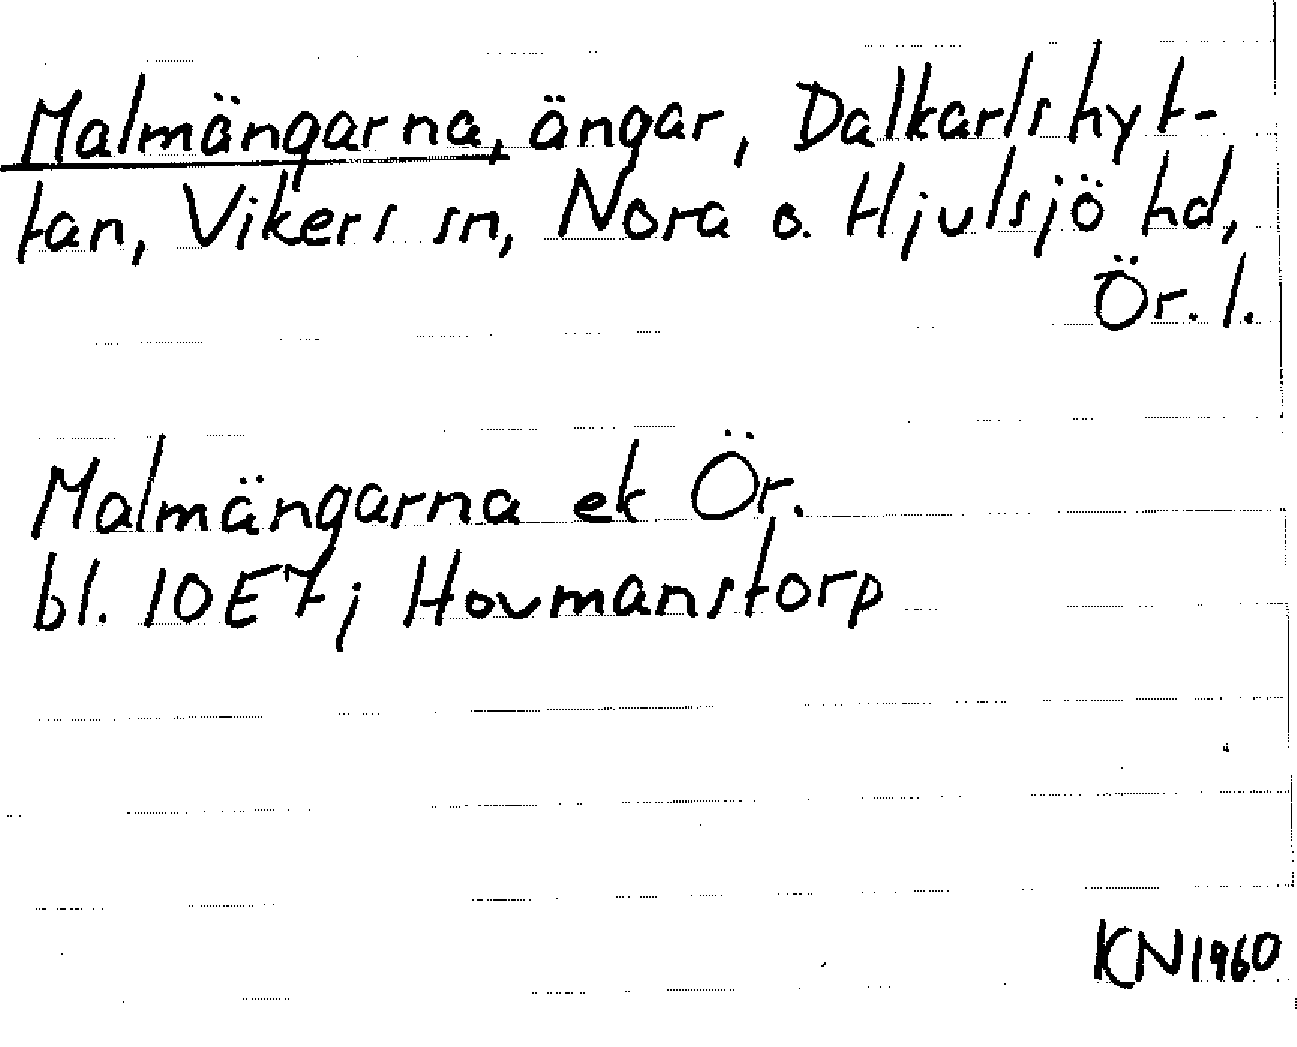 Malmängarna, ängar, Dalkarlshyt-
tan, Vikers sn, Nora o. Hjulsjö hd,
Ör. l.
Malmängarna ek Ör.
bl. 10E7j Hovmanstorp
KN1960